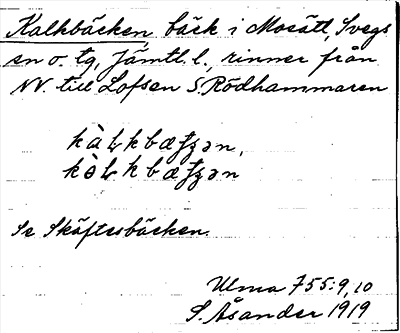 Kalkbäcken, bäck i Mosätt, Svegs
sn o. tg, Jämtl. l. rinner från
NV. till Lofsen S. Rödhammaren
Se Skäftesbäcken.
Ulma 755:9,10
S. Åsander 1919